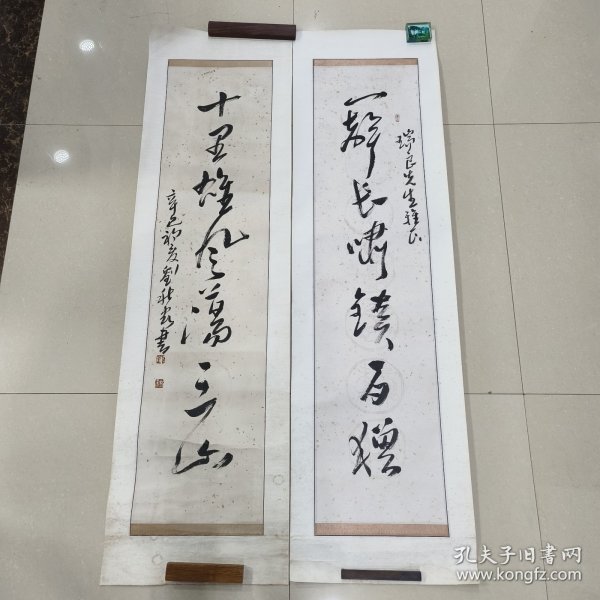 瑞良先生雅正
一声长啸镇百狸
十里雄风荡三山
辛巳初夏刘秋书
孔夫子旧书网
www.kongfz.com